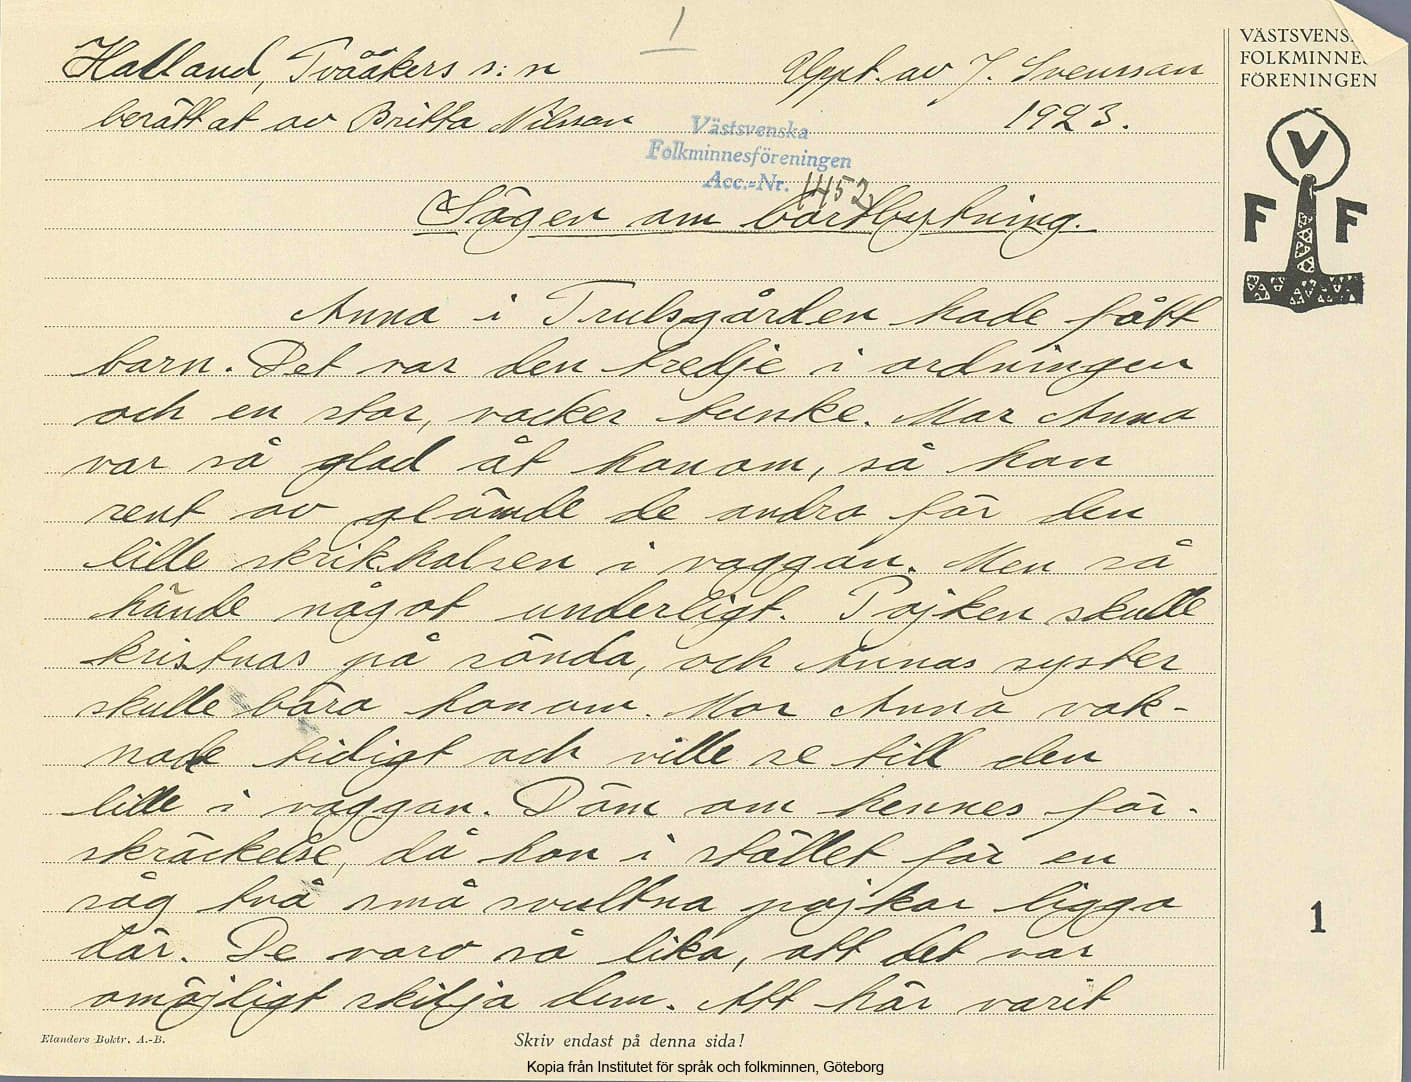 1
Halland, Tvååkers s:n
Uppt. av J. Svensson
berättat av Britta Nilsson
1923.
Västsvenska
Folkminnesföreningen
Acc.-Nr. 1452
Sägen om bortbytning.
Anna i Trulsgården hade fått
barn. Det var den tredje i ordningen
och en stor, vacker tunske. Mor Anna
var så glad åt honom, så hon
rent av glömde de andra för den
lille skrikhalsen i vaggan. Men så
hände något underligt. Pojken skulle
kristnas på sönda, och Annas syster
skulle bära honom. Mor Anna vak-
nade tidigt och ville se till den
lille i vaggan. Döm om hennes för-
skräckelse, då hon i stället för en
såg två små svultna pojkar ligga
där. De voro så lika, att det var
omöjligt skilja dem. Att här varit
VÄSTSVENS
FOLKMINNE
FÖRENINGEN
V
F F
1
Elanders Boktr. A.-B.
Skriv endast på denna sida!
Kopia från Institutet för språk och folkminnen, Göteborg